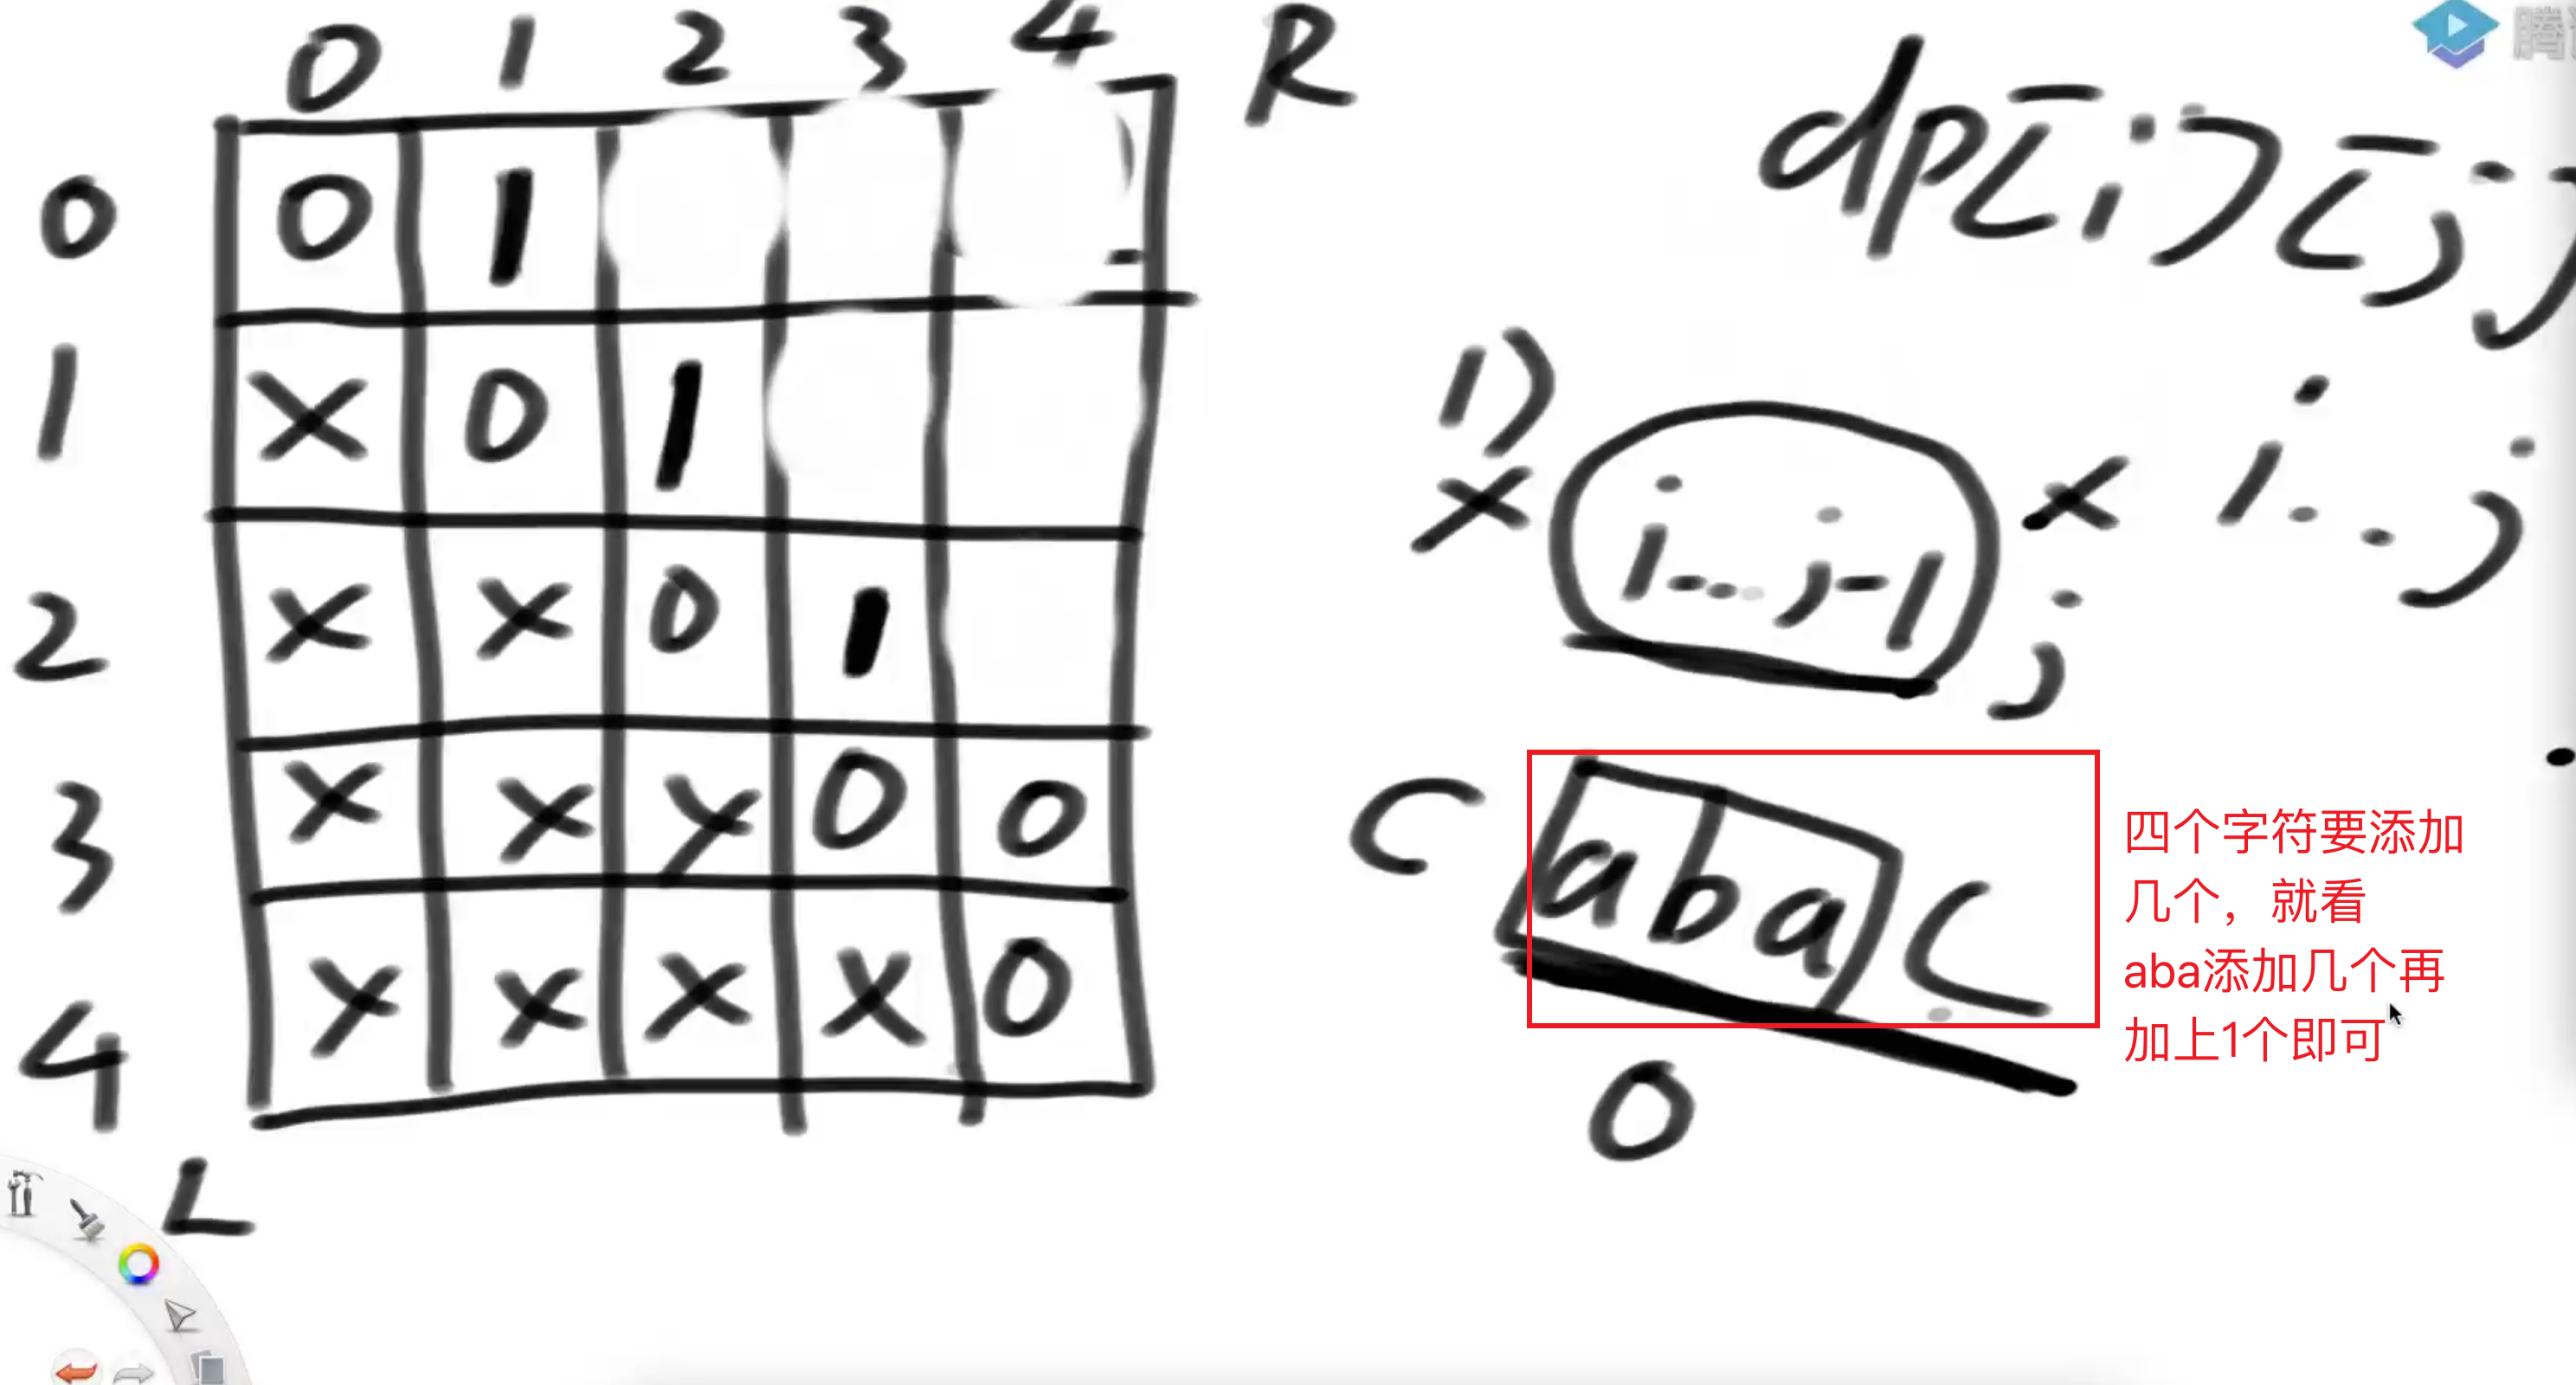 0 1 2 3 4 R
0 0 1
1 X 0 1
2 X X 0 1
3 X X X 0 0
4 X X X X 0
L
dp[i][j]
1)
X i...j-1 X i...j
j
C aba C
0
四个字符要添加
几个，就看
aba添加几个再
加上1个即可